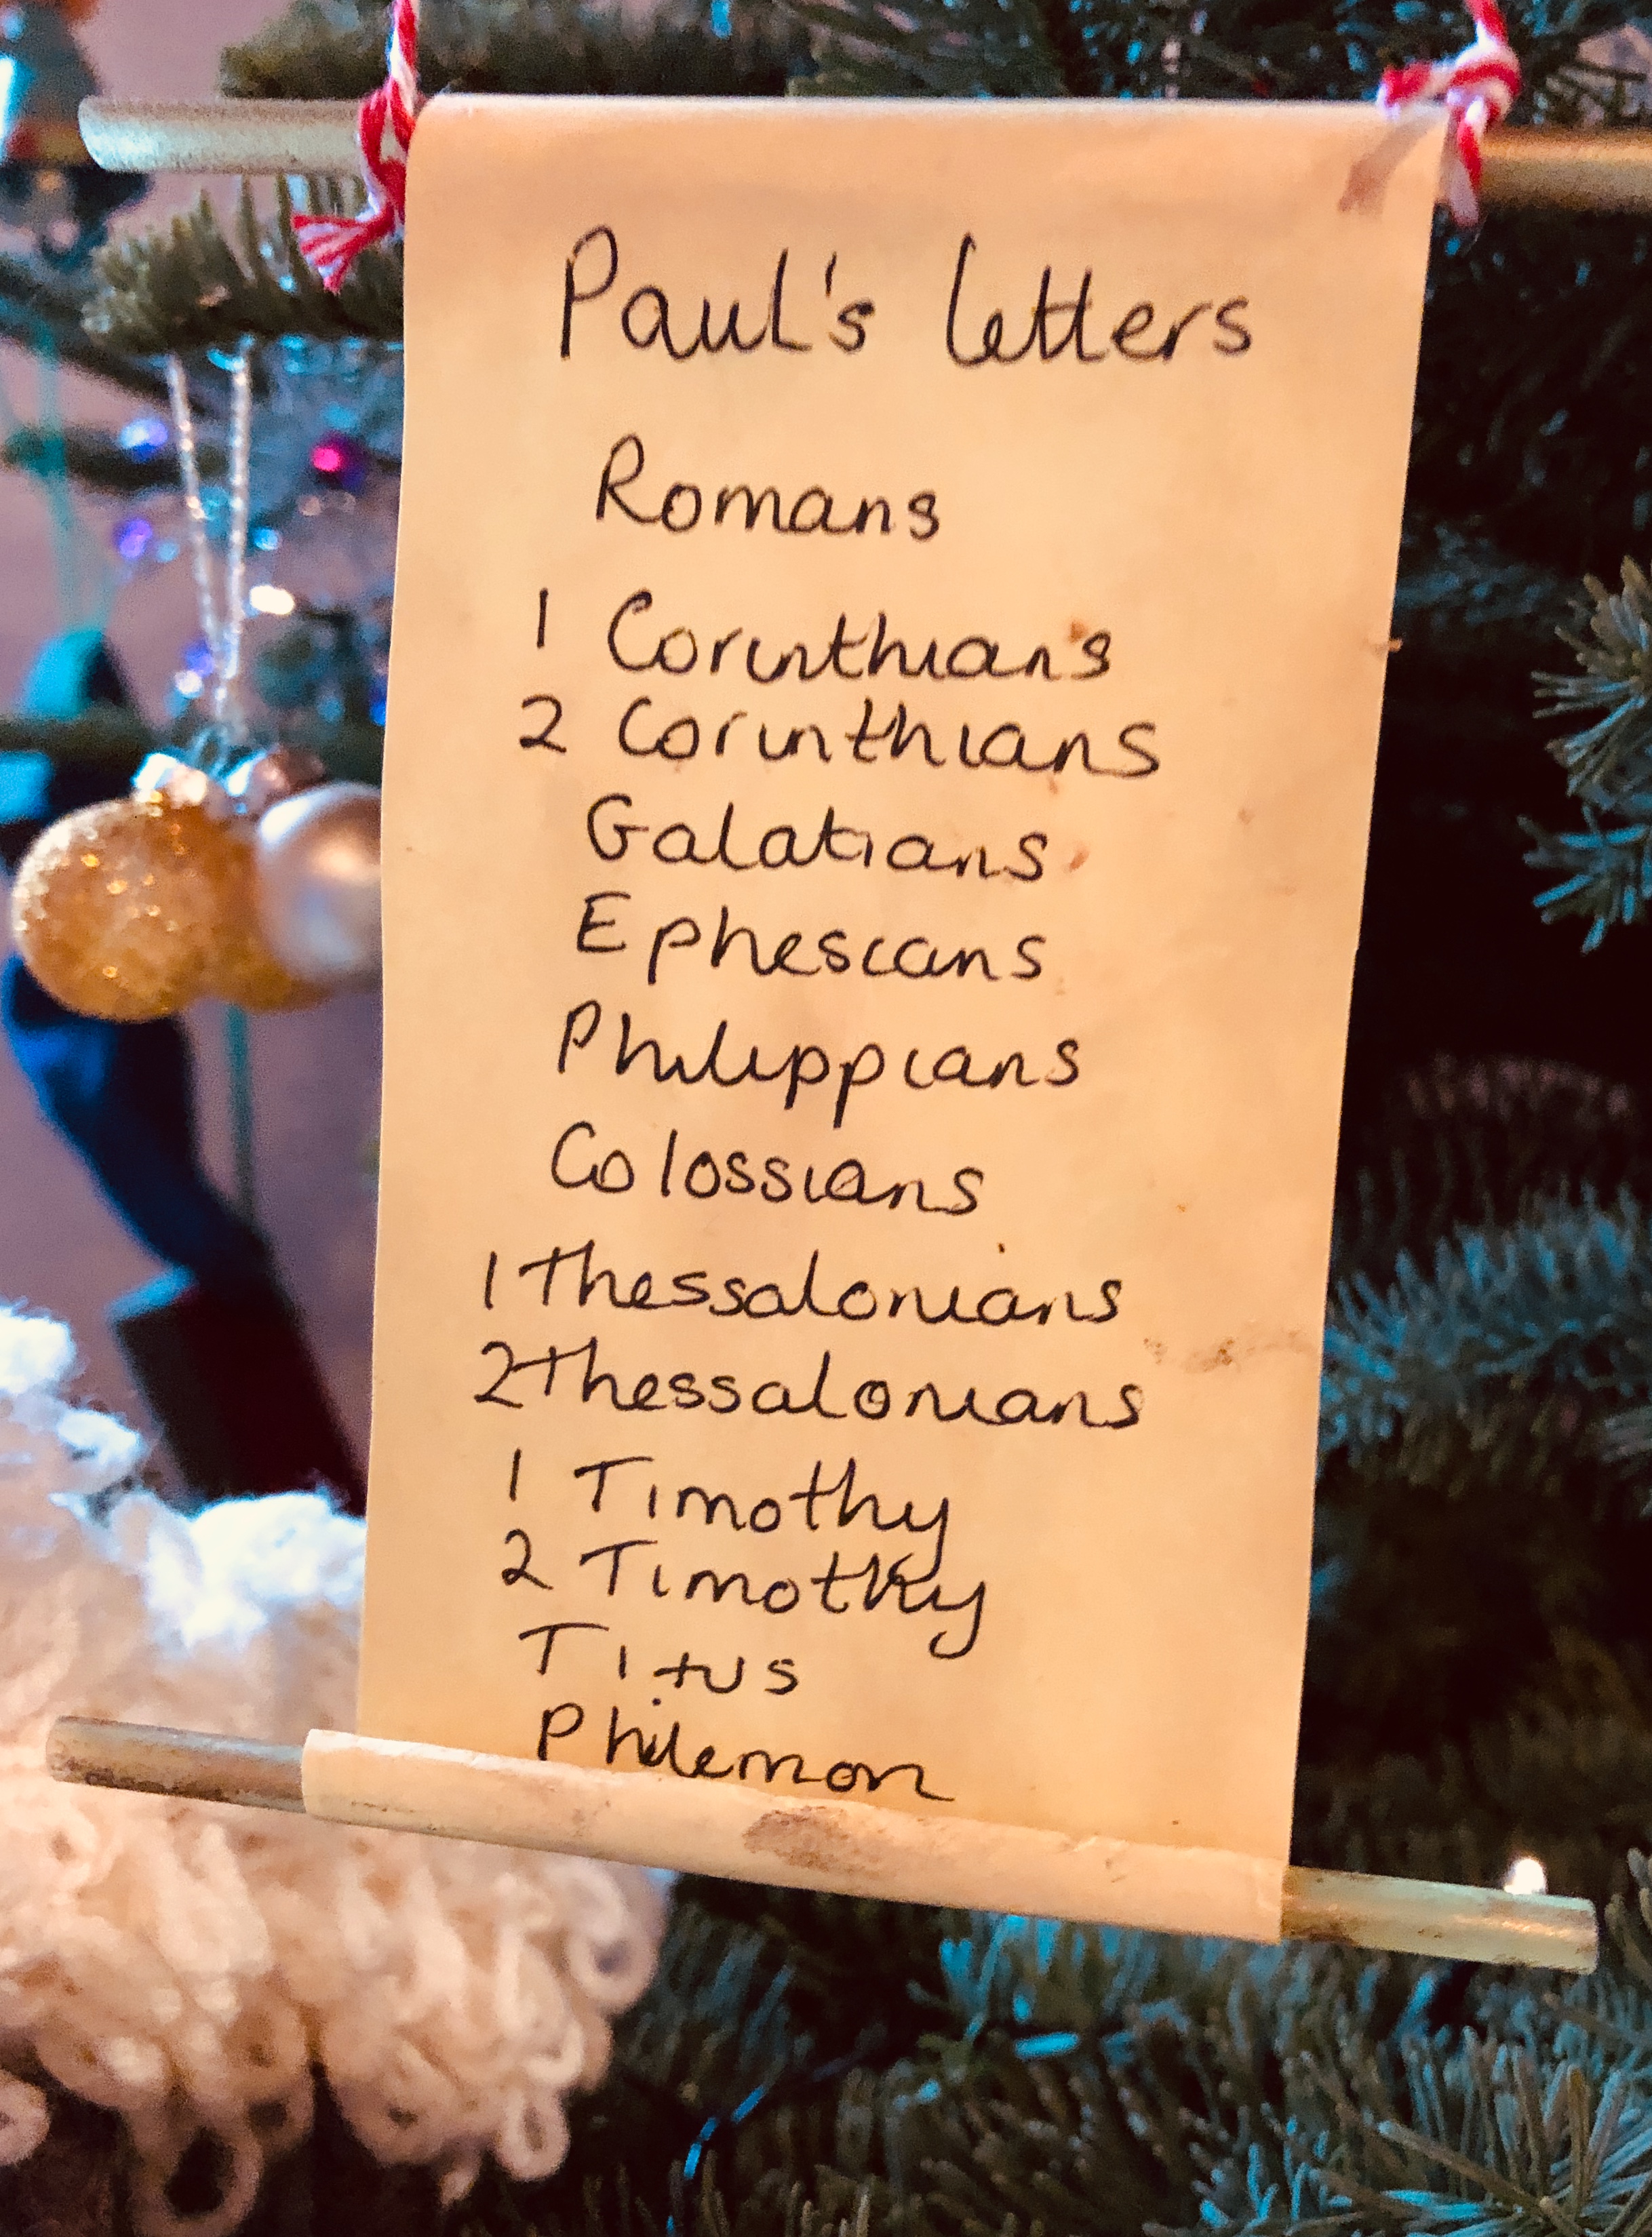 Paul's letters
Romans
1 Corinthians
2 Corinthians
Galatians
Ephesians
Philippians
Colossians
1 Thessalonians
2 Thessalonians
1 Timothy
2 Timothy
Titus
Philemon